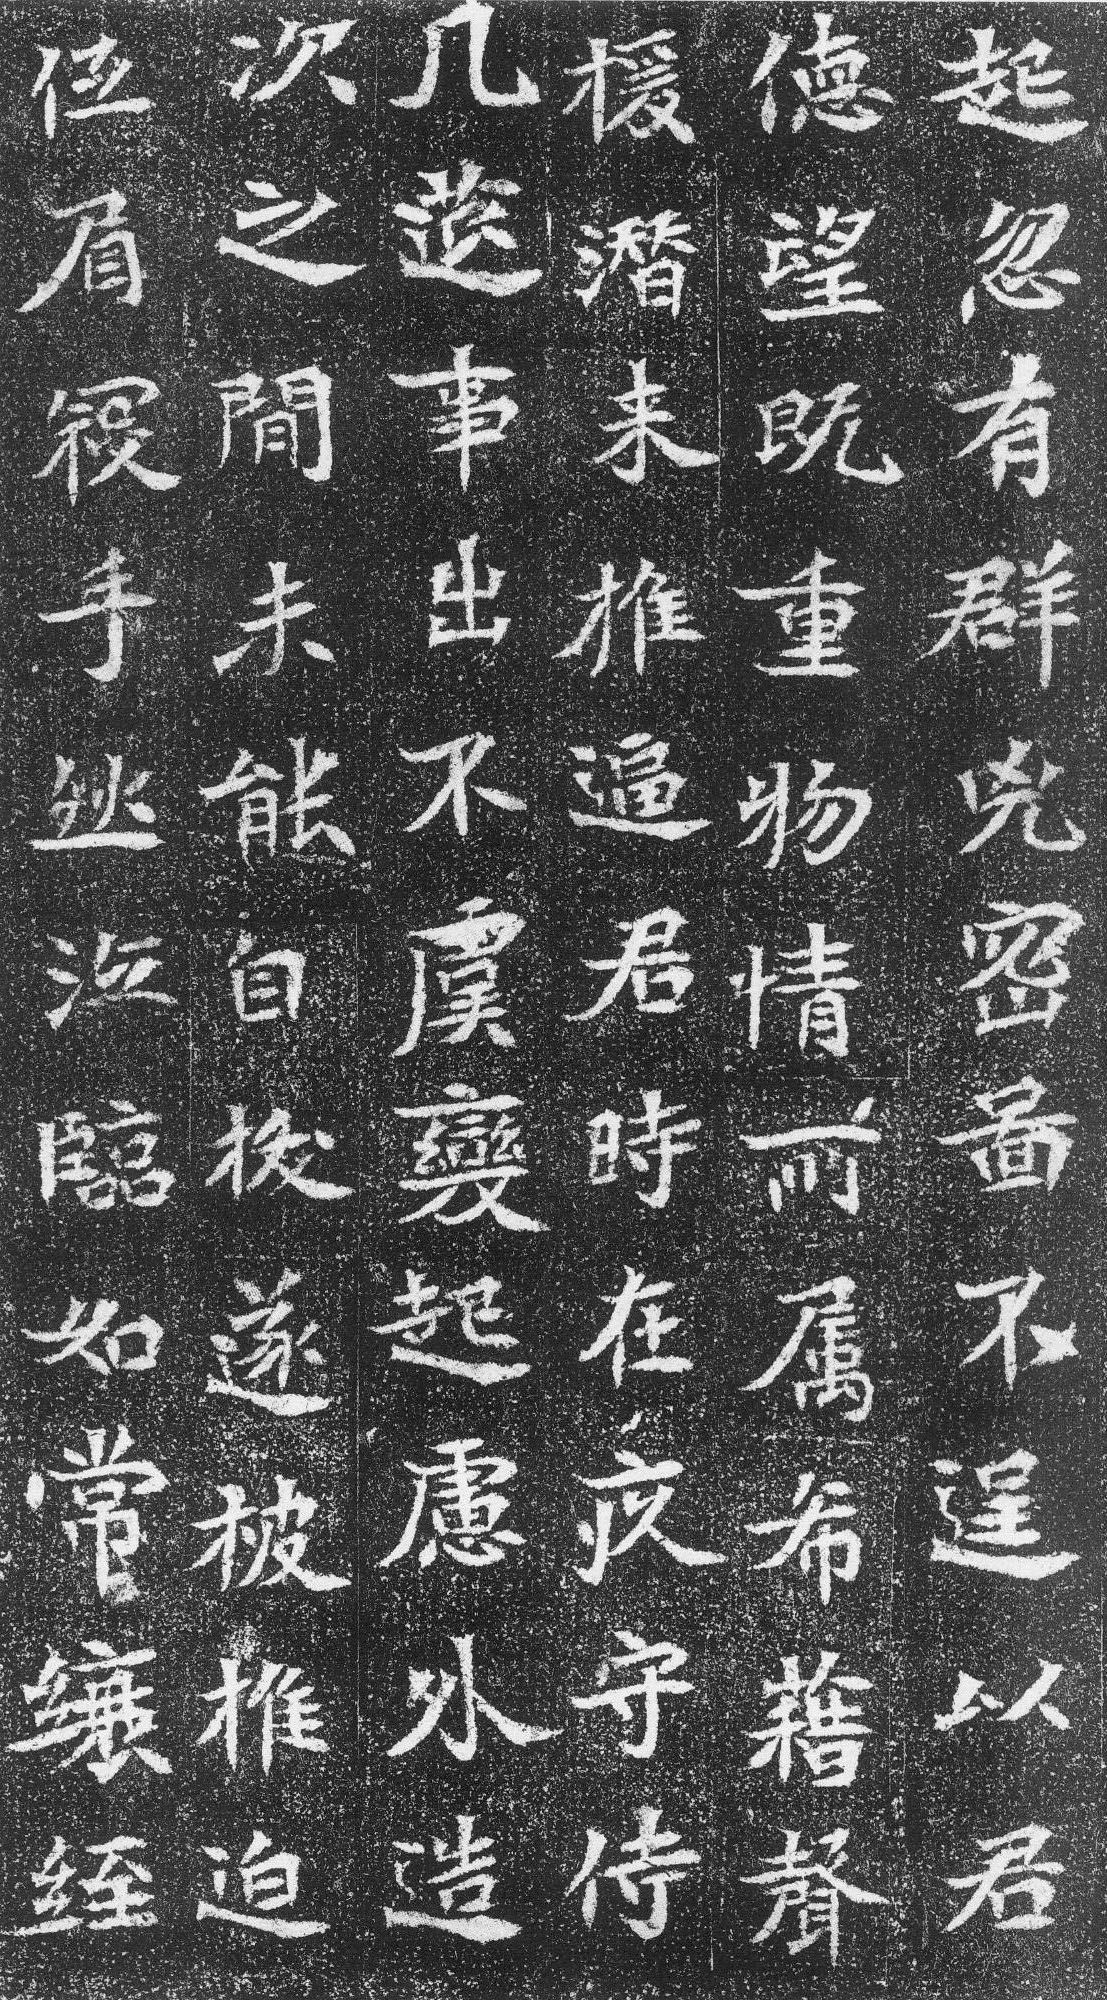 起忽有群兇密啚不逞以君
德望既重物情所属希藉聲
援潜来推逼君時在疚守侍
几筵事出不虞變起慮外造
次之間未能自拔遂被推迫
俛眉寝手並泣臨如常縗絰